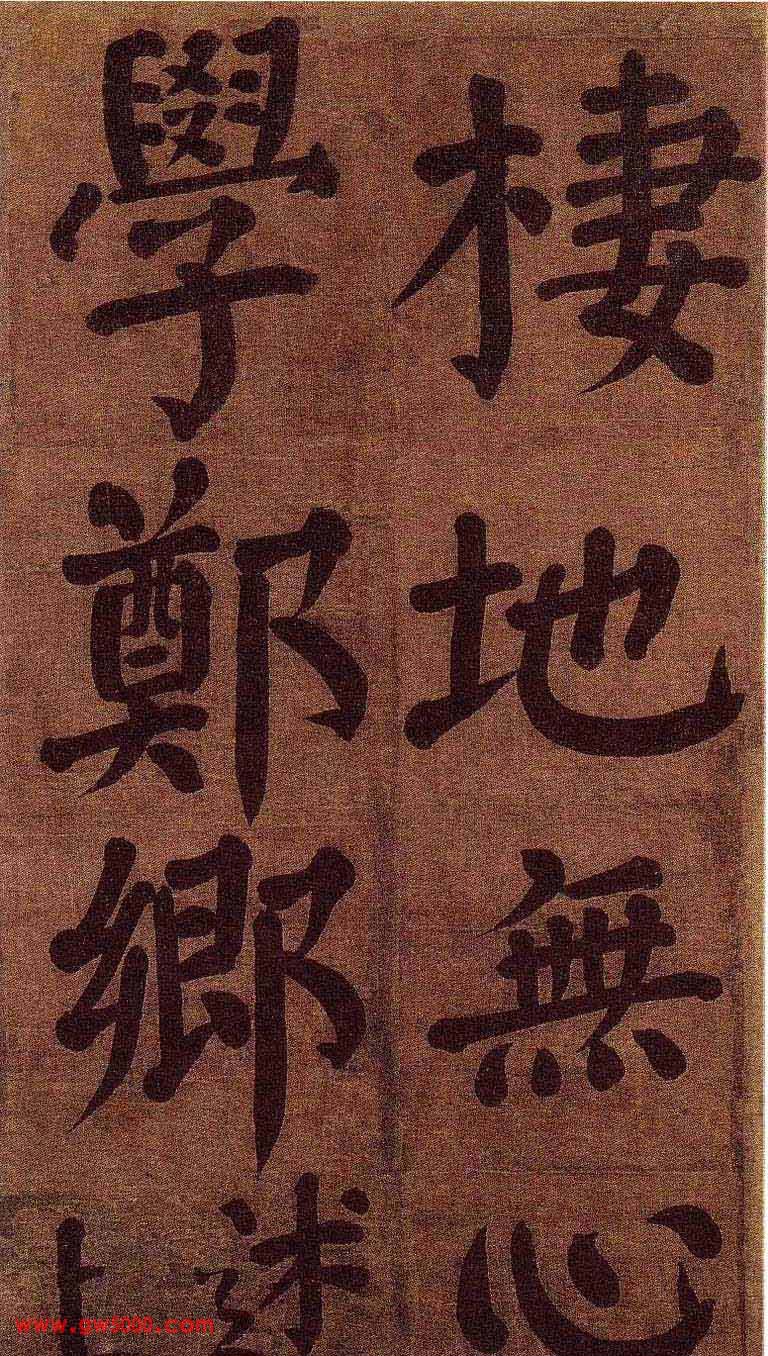 棲地無心
學鄭鄉述
www.gw5000.com